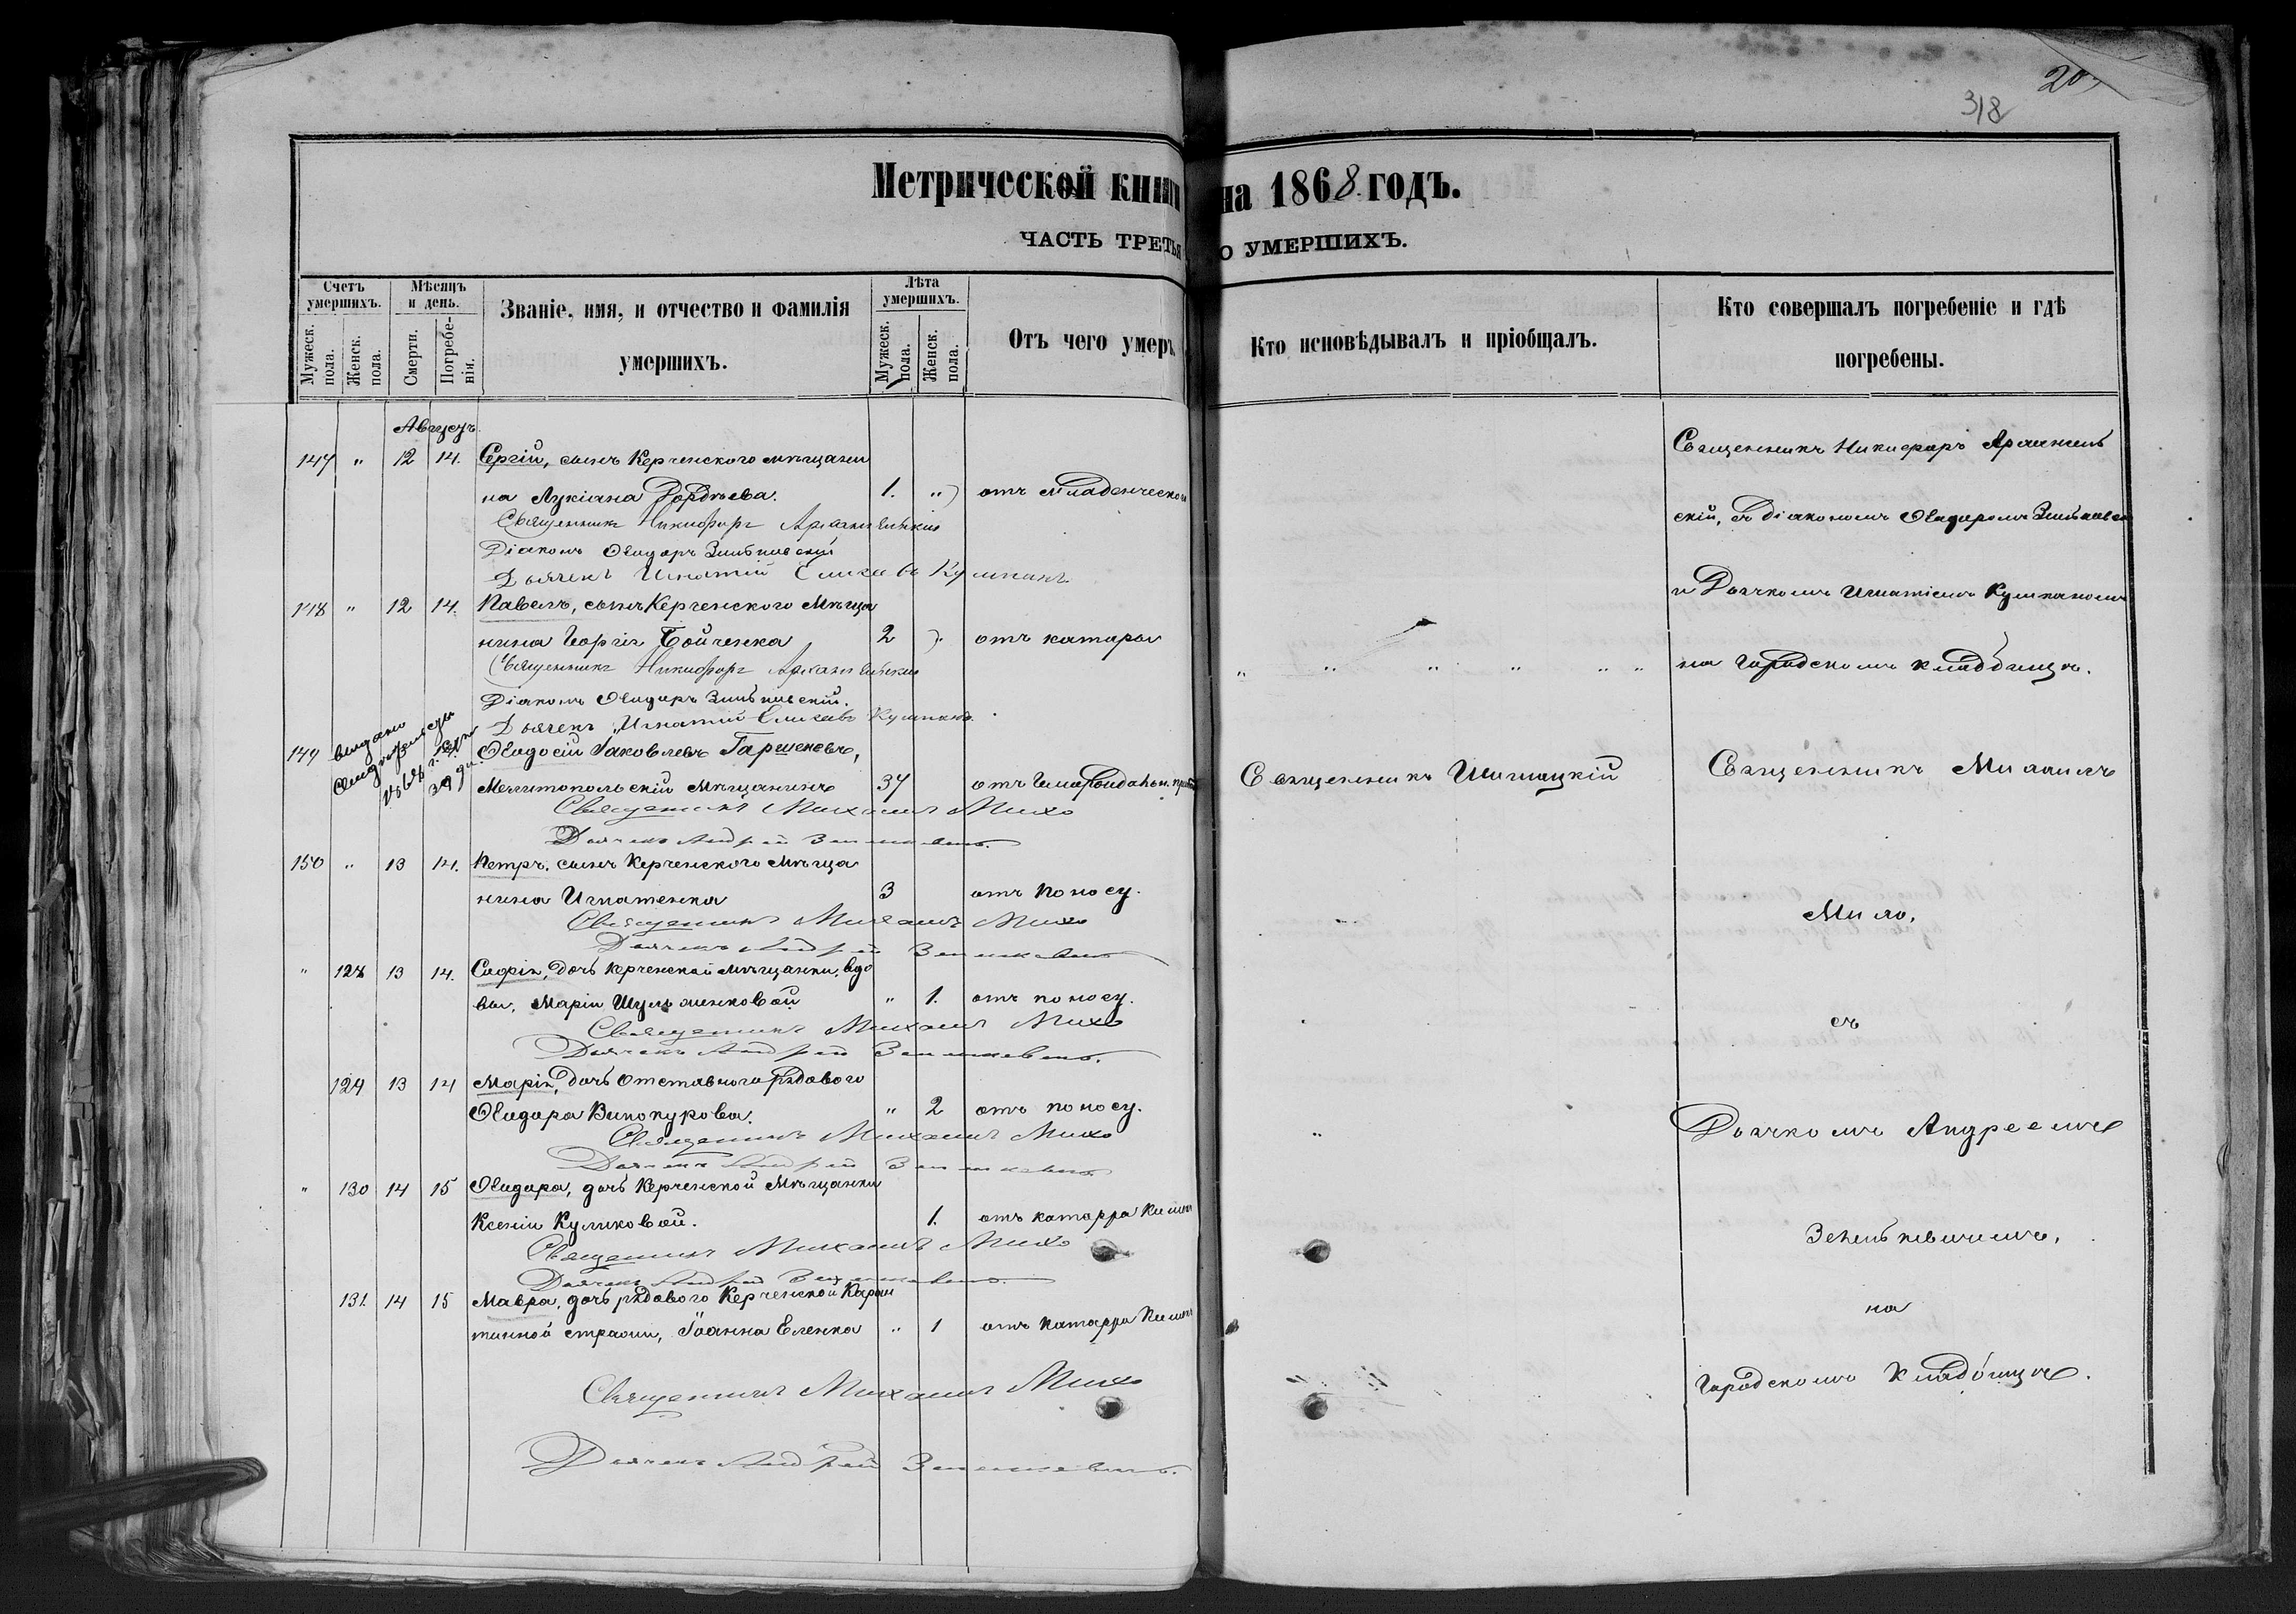 318
Метрической книги на 1868 годъ.
ЧАСТЬ ТРЕТЬЯ О УМЕРШИХЪ.
Счетъ умершихъ.
Мужеск. пола.
Женск. пола.
Мѣсяцъ и день.
Смерти.
Погребенія.
Званіе, имя, и отчество и фамилія умершихъ.
Лѣта умершихъ.
Мужеск. пола.
Женск. пола.
Отъ чего умеръ.
Кто исповѣдывалъ и пріобщалъ.
Кто совершалъ погребеніе и гдѣ погребены.
Августъ
147 " 12 14. Сергій, сынъ Керченского мѣщани
на Лукіана Гордѣева. 1. " отъ младенческой
Священникъ Никифоръ Архангельскій
Діаконъ Ѳеодоръ
Дьячекъ Игнатій Кушнанъ
148 " 12 14. Павелъ, сынъ Керченского Мѣща
нина Георгія Бойченка 2 отъ катары
Священникъ Никифоръ Архангельскій
Діаконъ Ѳеодоръ
Дьячекъ Игнатій
149 выдано
Ѳеодосій Іаковлевъ Гаршеневъ,
Мелитопольскій Мѣщанинъ 37 отъ
Священникъ Михаилъ Михо
Дьячекъ Андрей Зенькевичъ.
150 " 13 14. Петръ, сынъ Керченского Мѣща
нина Игнатенка 3 отъ поносу.
Священникъ Михаилъ Михо
Дьячекъ Андрей Зенькевичъ
" 128 13 14. Софія, дочь Керченской мѣщанки, вдо
вы, Маріи 1. отъ поносу.
Священникъ Михаилъ Михо
Дьячекъ Андрей Зенькевичъ.
129 13 14 Марія, дочь отставного рядового
Ѳеодора Винокурова. " 2 отъ поносу.
Священникъ Михаилъ Михо
Дьячекъ Андрей Зенькевичъ.
" 130 14 15 Ѳеодора, дочь Керченской Мѣщанки
Ксеніи Куликовой. 1. отъ катарра Кишек
Священникъ Михаилъ Михо
Дьячекъ Андрей Зенькевичъ.
131. 14 15 Мавра, дочь рядового Керченской Каран
тинной стражи, Іоанна Еленка " 1 отъ Катарра Кишек
Священникъ Михаилъ Михо
Дьячекъ Андрей Зенькевичъ.
Священникъ
Священникъ Никифоръ Архангель
скій, съ діакономъ Ѳеодоромъ
и Дьячкомъ Игнатіемъ
на Городскомъ кладбищѣ.
Священникъ Михаилъ
Михо,
съ
Дьячкомъ Андреемъ
Зенькевичемъ,
на
Городскомъ Кладбищѣ.